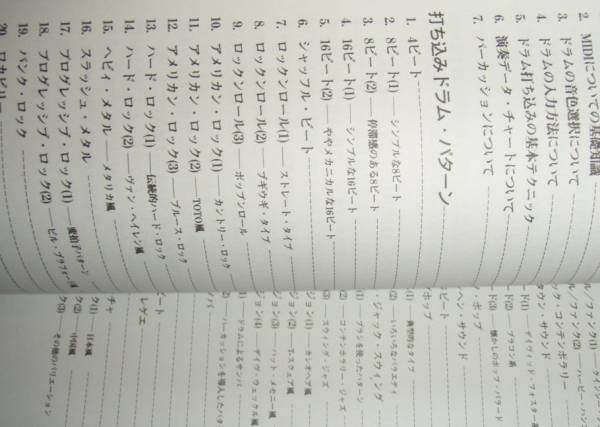 2. MIDIについての基礎知識
3. ドラムの音色選択について
4. ドラムの入力方法について
5. ドラム打ち込みの基本テクニック
6. 演奏データ・チャートについて
7. パーカッションについて
打ち込みドラム・パターン
1. 4ビート
2. 8ビート(1) シンプルな8ビート
3. 8ビート(2) 停滞感のある8ビート
4. 16ビート(1) シンプルな16ビート
5. 16ビート(2) ややメカニカルな16ビート
6. シャッフル・ビート
7. ロックンロール(1) ストレート・タイプ
8. ロックンロール(2) ブギウギ・タイプ
9. ロックンロール(3) ポップンロール
10. アメリカン・ロック(1) カントリー・ロック
11. アメリカン・ロック(2) TOTO風
12. アメリカン・ロック(3) ブルース・ロック
13. ハード・ロック(1) 伝統的ハード・ロック
14. ハード・ロック(2) ヴァン・ヘイレン風
15. ヘビィ・メタル メタリカ風
16. スラッシュ・メタル
17. プログレッシブ・ロック(1) 変拍子パターン
18. プログレッシブ・ロック(2) ビル・ブラフォード風
19. パンク・ロック
20. ロカビリー
ル/ファンク(2) ハービー・ハンコ
ック・コンテンポラリー
タウン・サウンド
ード(1) デイヴィッド・フォスター風
ード(2) ブラコン系
ード(3) 懐かしのポップ・バラード
・ポップ
ヘン・サウンド
ビート
ホップ
(1) 典型的なタイプ
(2) いろいろなバラエティ
ジャック・スウィング
(1) ブラシを使ったパターン
(2) コンテンポラリー・ジャズ
(3) スウィング・ジャズ
ジョン(1) カシオペア風
ジョン(2) T-スクェア風
ジョン(3) パット・メセニー風
ジョン(4) デイヴ・ウェックル風
1) ドラムによるサンバ
2) パーカッションを導入したパタ
バ
ビート
レゲエ
チャ
ク(1) 日本風
ク(2) 中国風
ク(3) その他のバリエーション